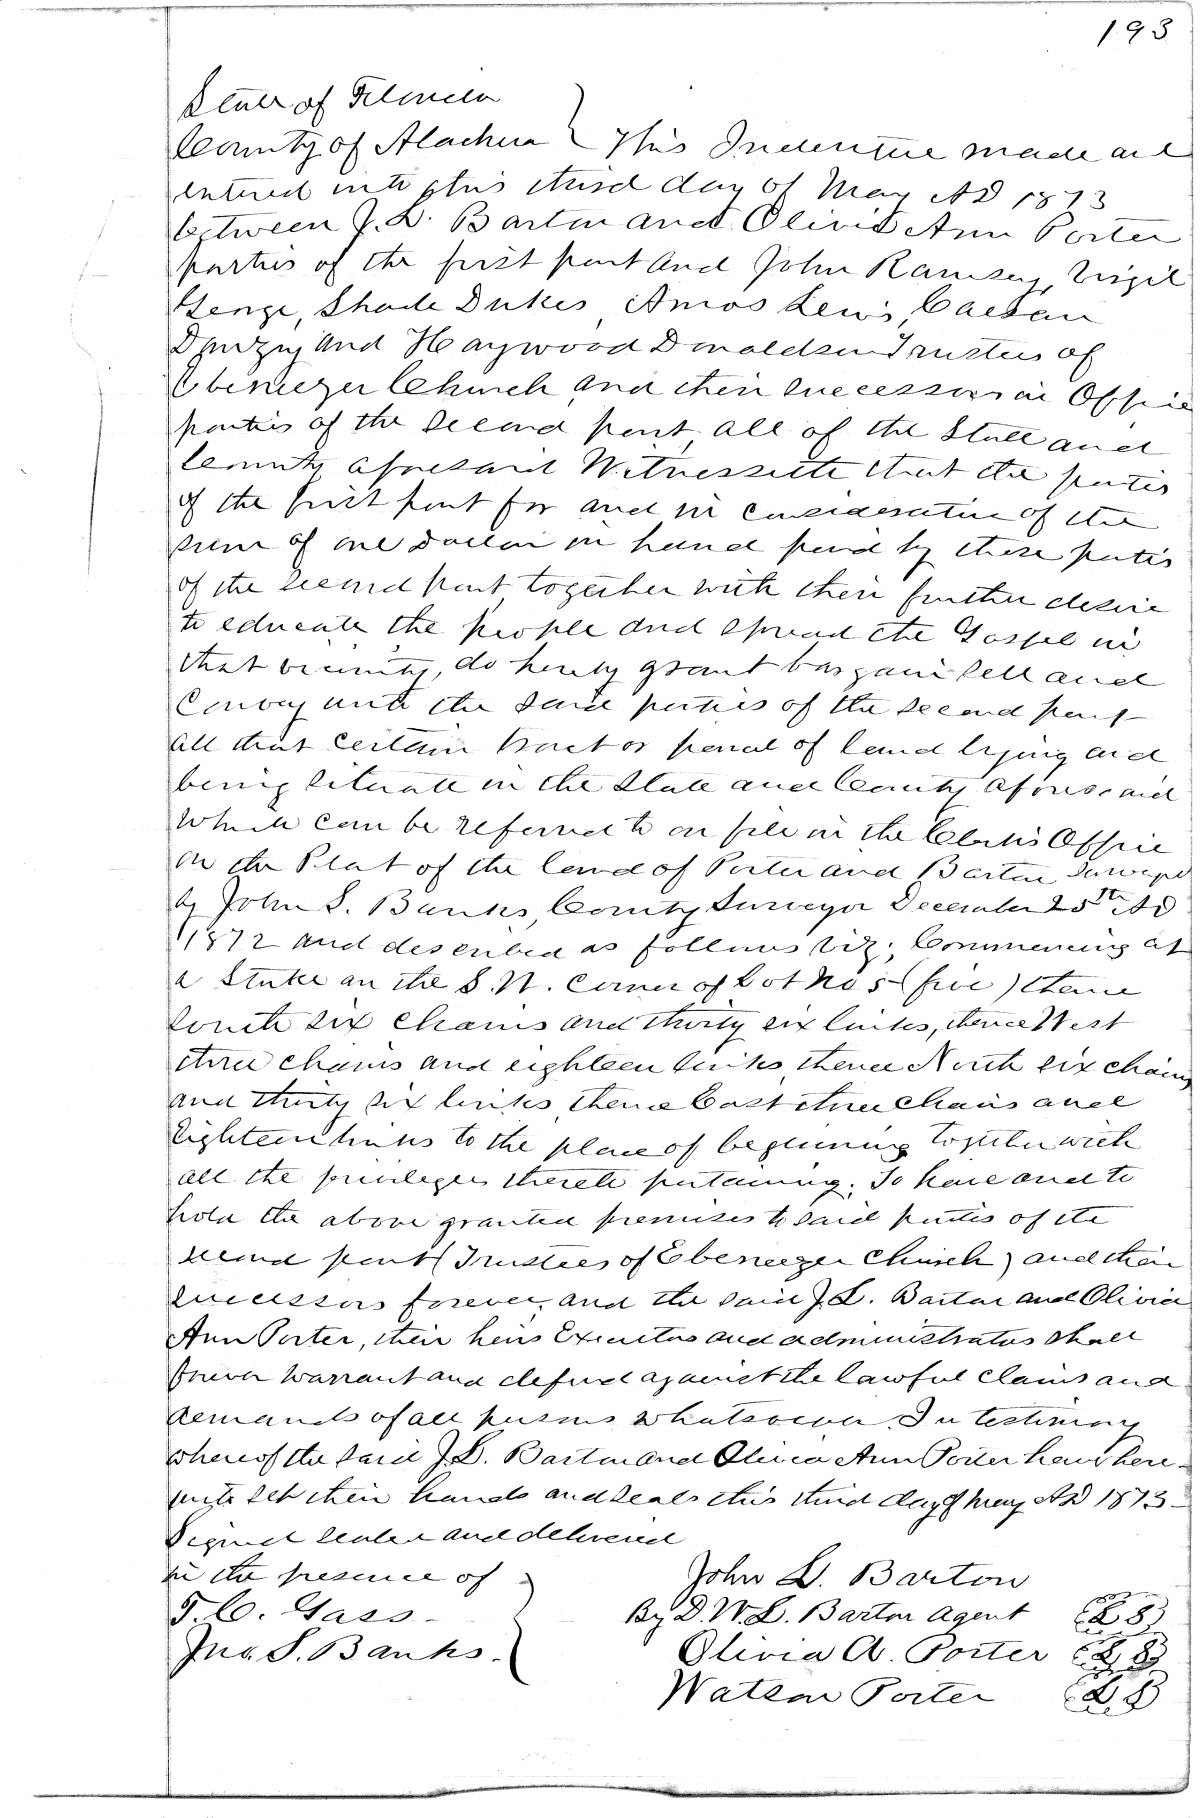 193
State of Florida
County of Alachua } This Indenture made and
entered into this third day of May AD 1873
between J. L. Barton and Olivia Ann Porter
parties of the first part and John Ramsey, Virgil
George, Shade Dukes, Amos Lewis, Caesar
and Haywood Donaldson Trustees of
Ebeneezer Church, and their successors in Office
parties of the second part, all of the State and
County aforesaid Witnesseth that the parties
of the first part for and in consideration of the
sum of one Dollar in hand paid by these parties
of the second part, together with their further desire
to educate the people and spread the Gospel in
that vicinity, do hereby grant bargain sell and
Convey unto the said parties of the second part
all that certain tract or parcel of land lying and
being situate in the State and County aforesaid
which can be referred to on file in the Clerks Office
on the Plat of the land of Porter and Barton Surveyed
by John S. Banks, County Surveyor December 25th AD
1872 and described as follows viz; Commencing at
a Stake on the S.W. Corner of Lot No 5 (five) thence
South six chains and thirty six links, thence West
three chains and eighteen links, thence North six chains
and thirty six links, thence East three chains and
Eighteen links to the place of beginning together with
all the privileges thereto pertaining. To have and to
hold the above granted premises to said parties of the
second part (Trustees of Ebeneezer Church) and their
successors forever, and the said J. L. Barton and Olivia
Ann Porter, their heirs Executors and administrators shall
forever warrant and defend against the lawful claims and
demands of all persons whatsoever. In testimony
whereof the said J. L. Barton and Olivia Ann Porter have here-
unto set their hands and seals this third day of May AD 1873-
Signed sealed and delivered
in the presence of }
T. C. Gass-
Jno. S. Banks.
John L. Barton
By D. W. L. Barton agent LS
Olivia A. Porter LS
Watson Porter LS